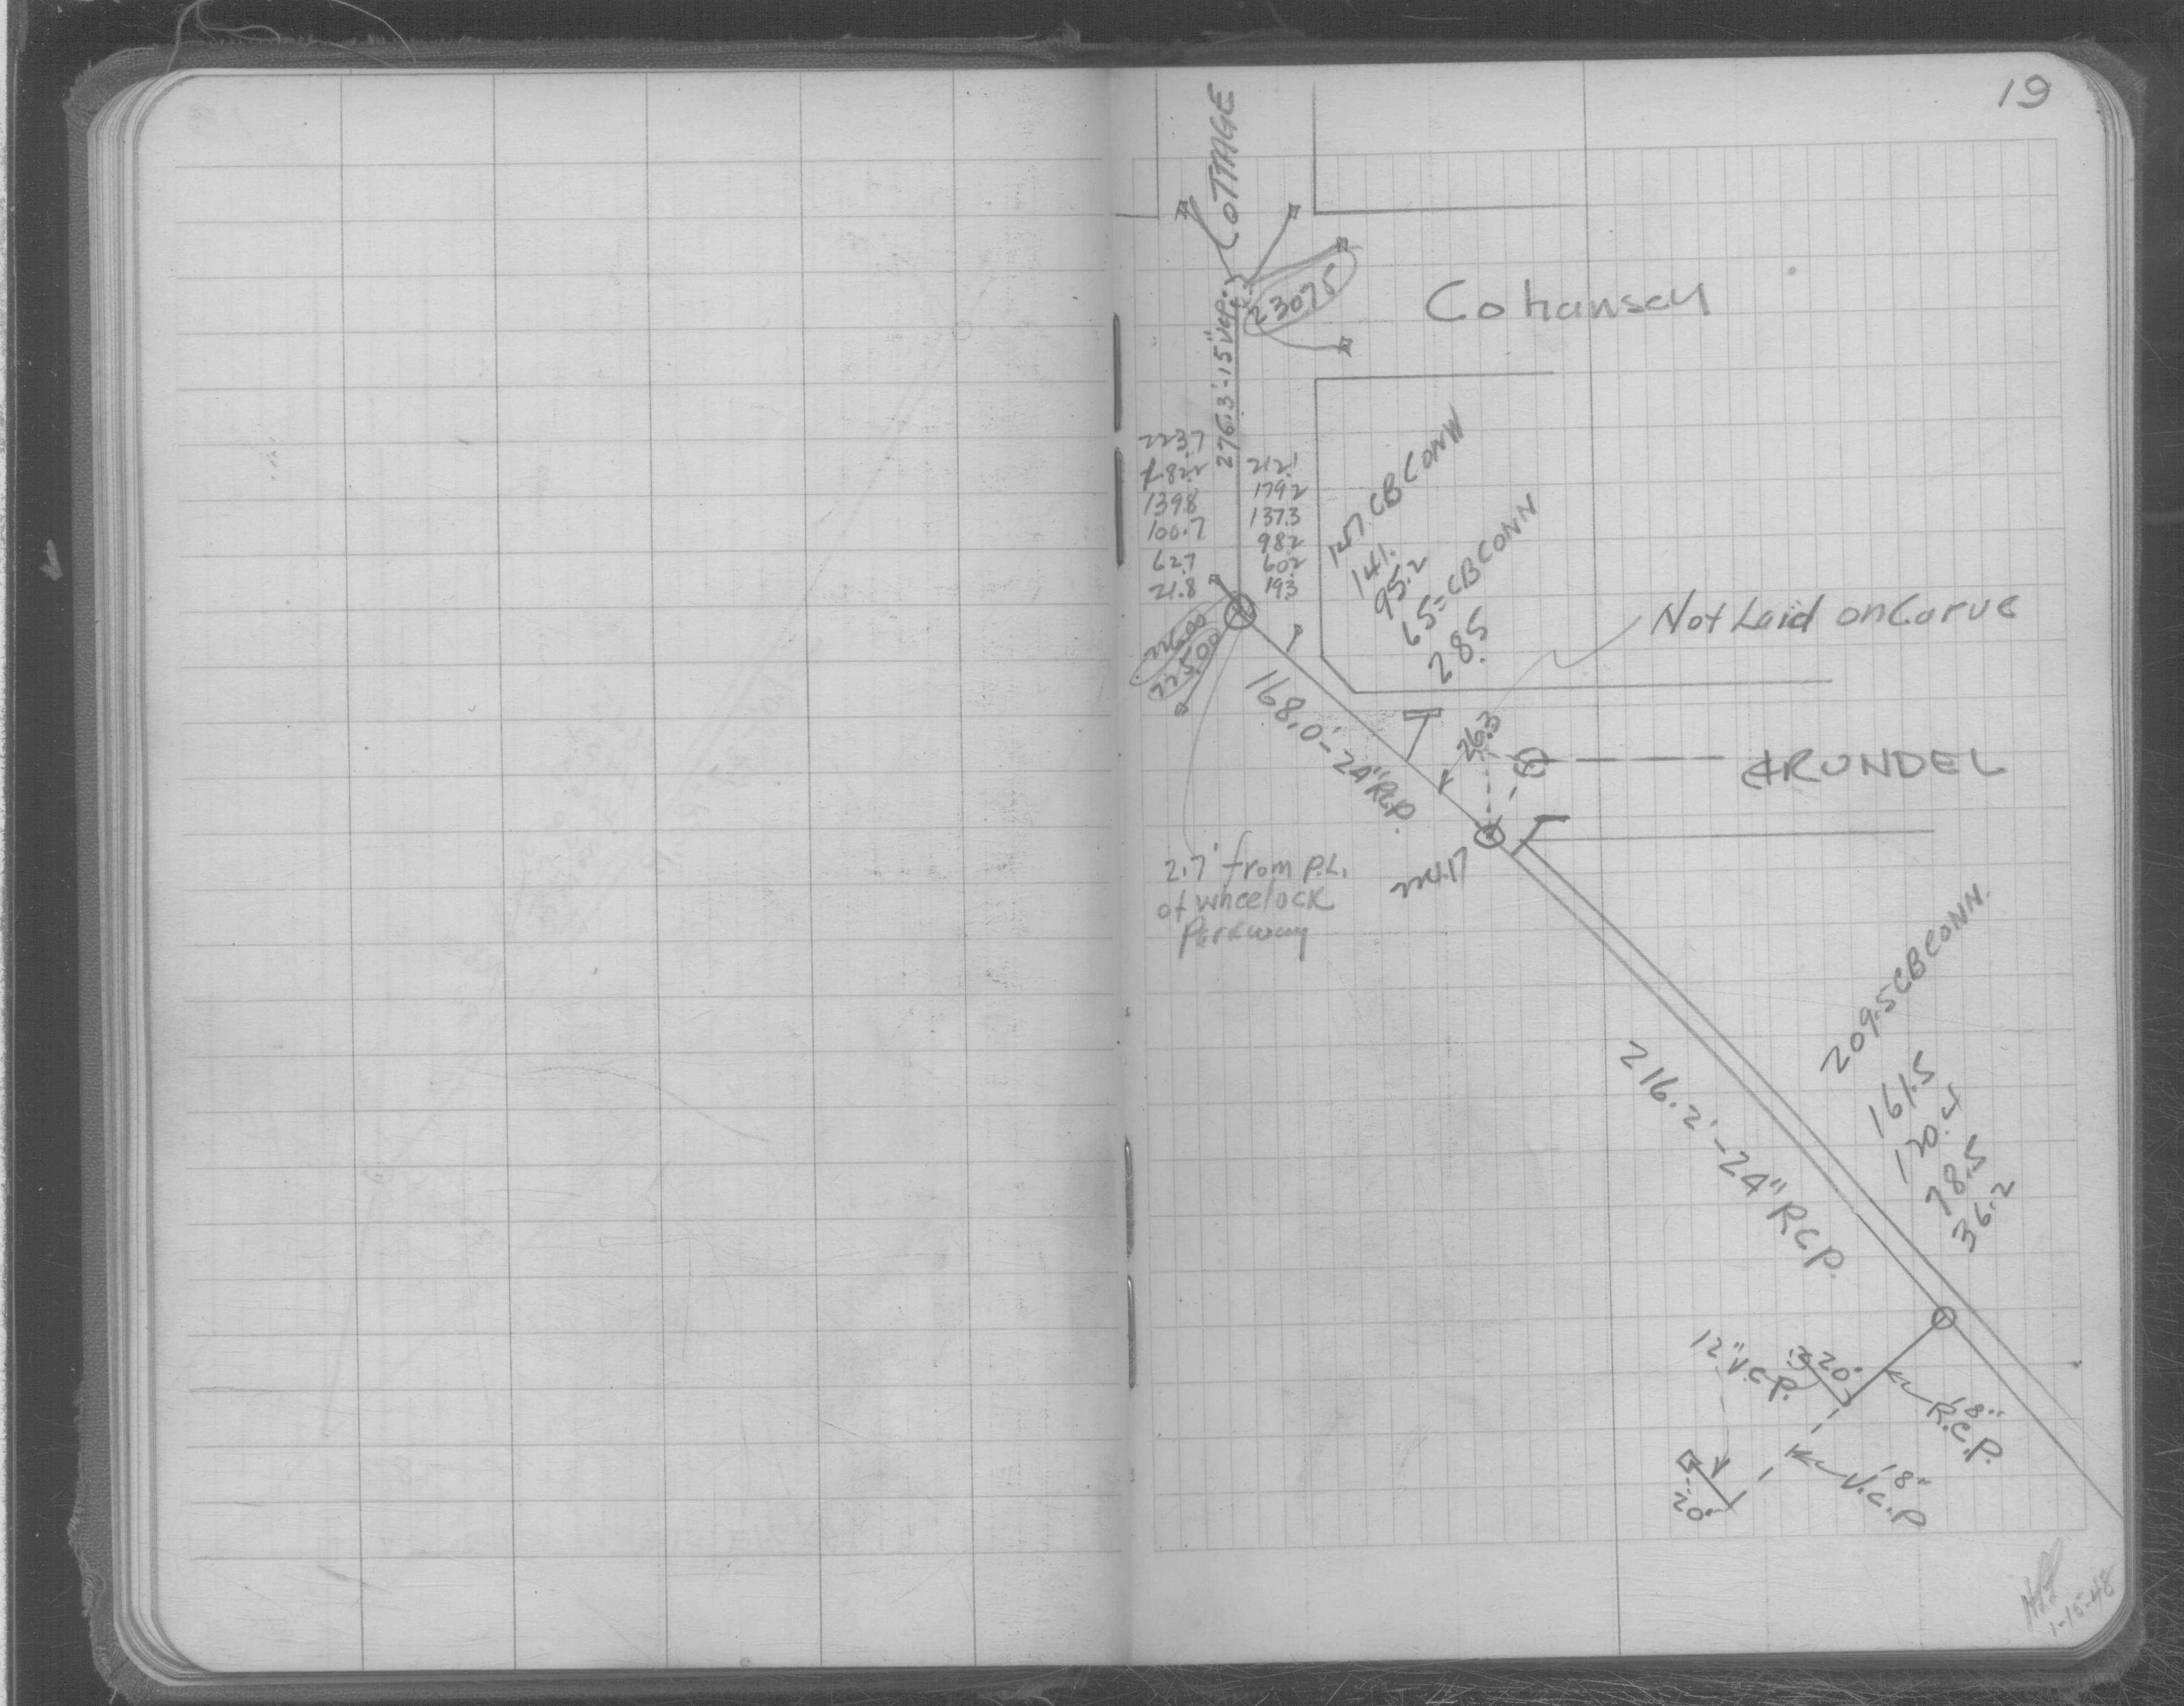 19
COTTAGE
230.75
Cohansey
276.3'-15" V.C.P.
223.7
182.2
139.8
100.7
62.7
21.8
212.1
179.2
137.3
98.2
60.2
19.3
CB CONN
141.
95.2
65= CB CONN
28.5
Not Laid on Curve
226.00
225.00
168.0'-24" R.C.P.
26.3
ARUNDEL
224.17
2.7' from P.L.
of wheelock
Parkway
209.5 CB CONN.
161.5
120.4
78.5
36.2
216.2'-24" R.C.P.
12" V.C.P.
20'
18"
R.C.P.
18"
V.C.P
20'
1-15-48